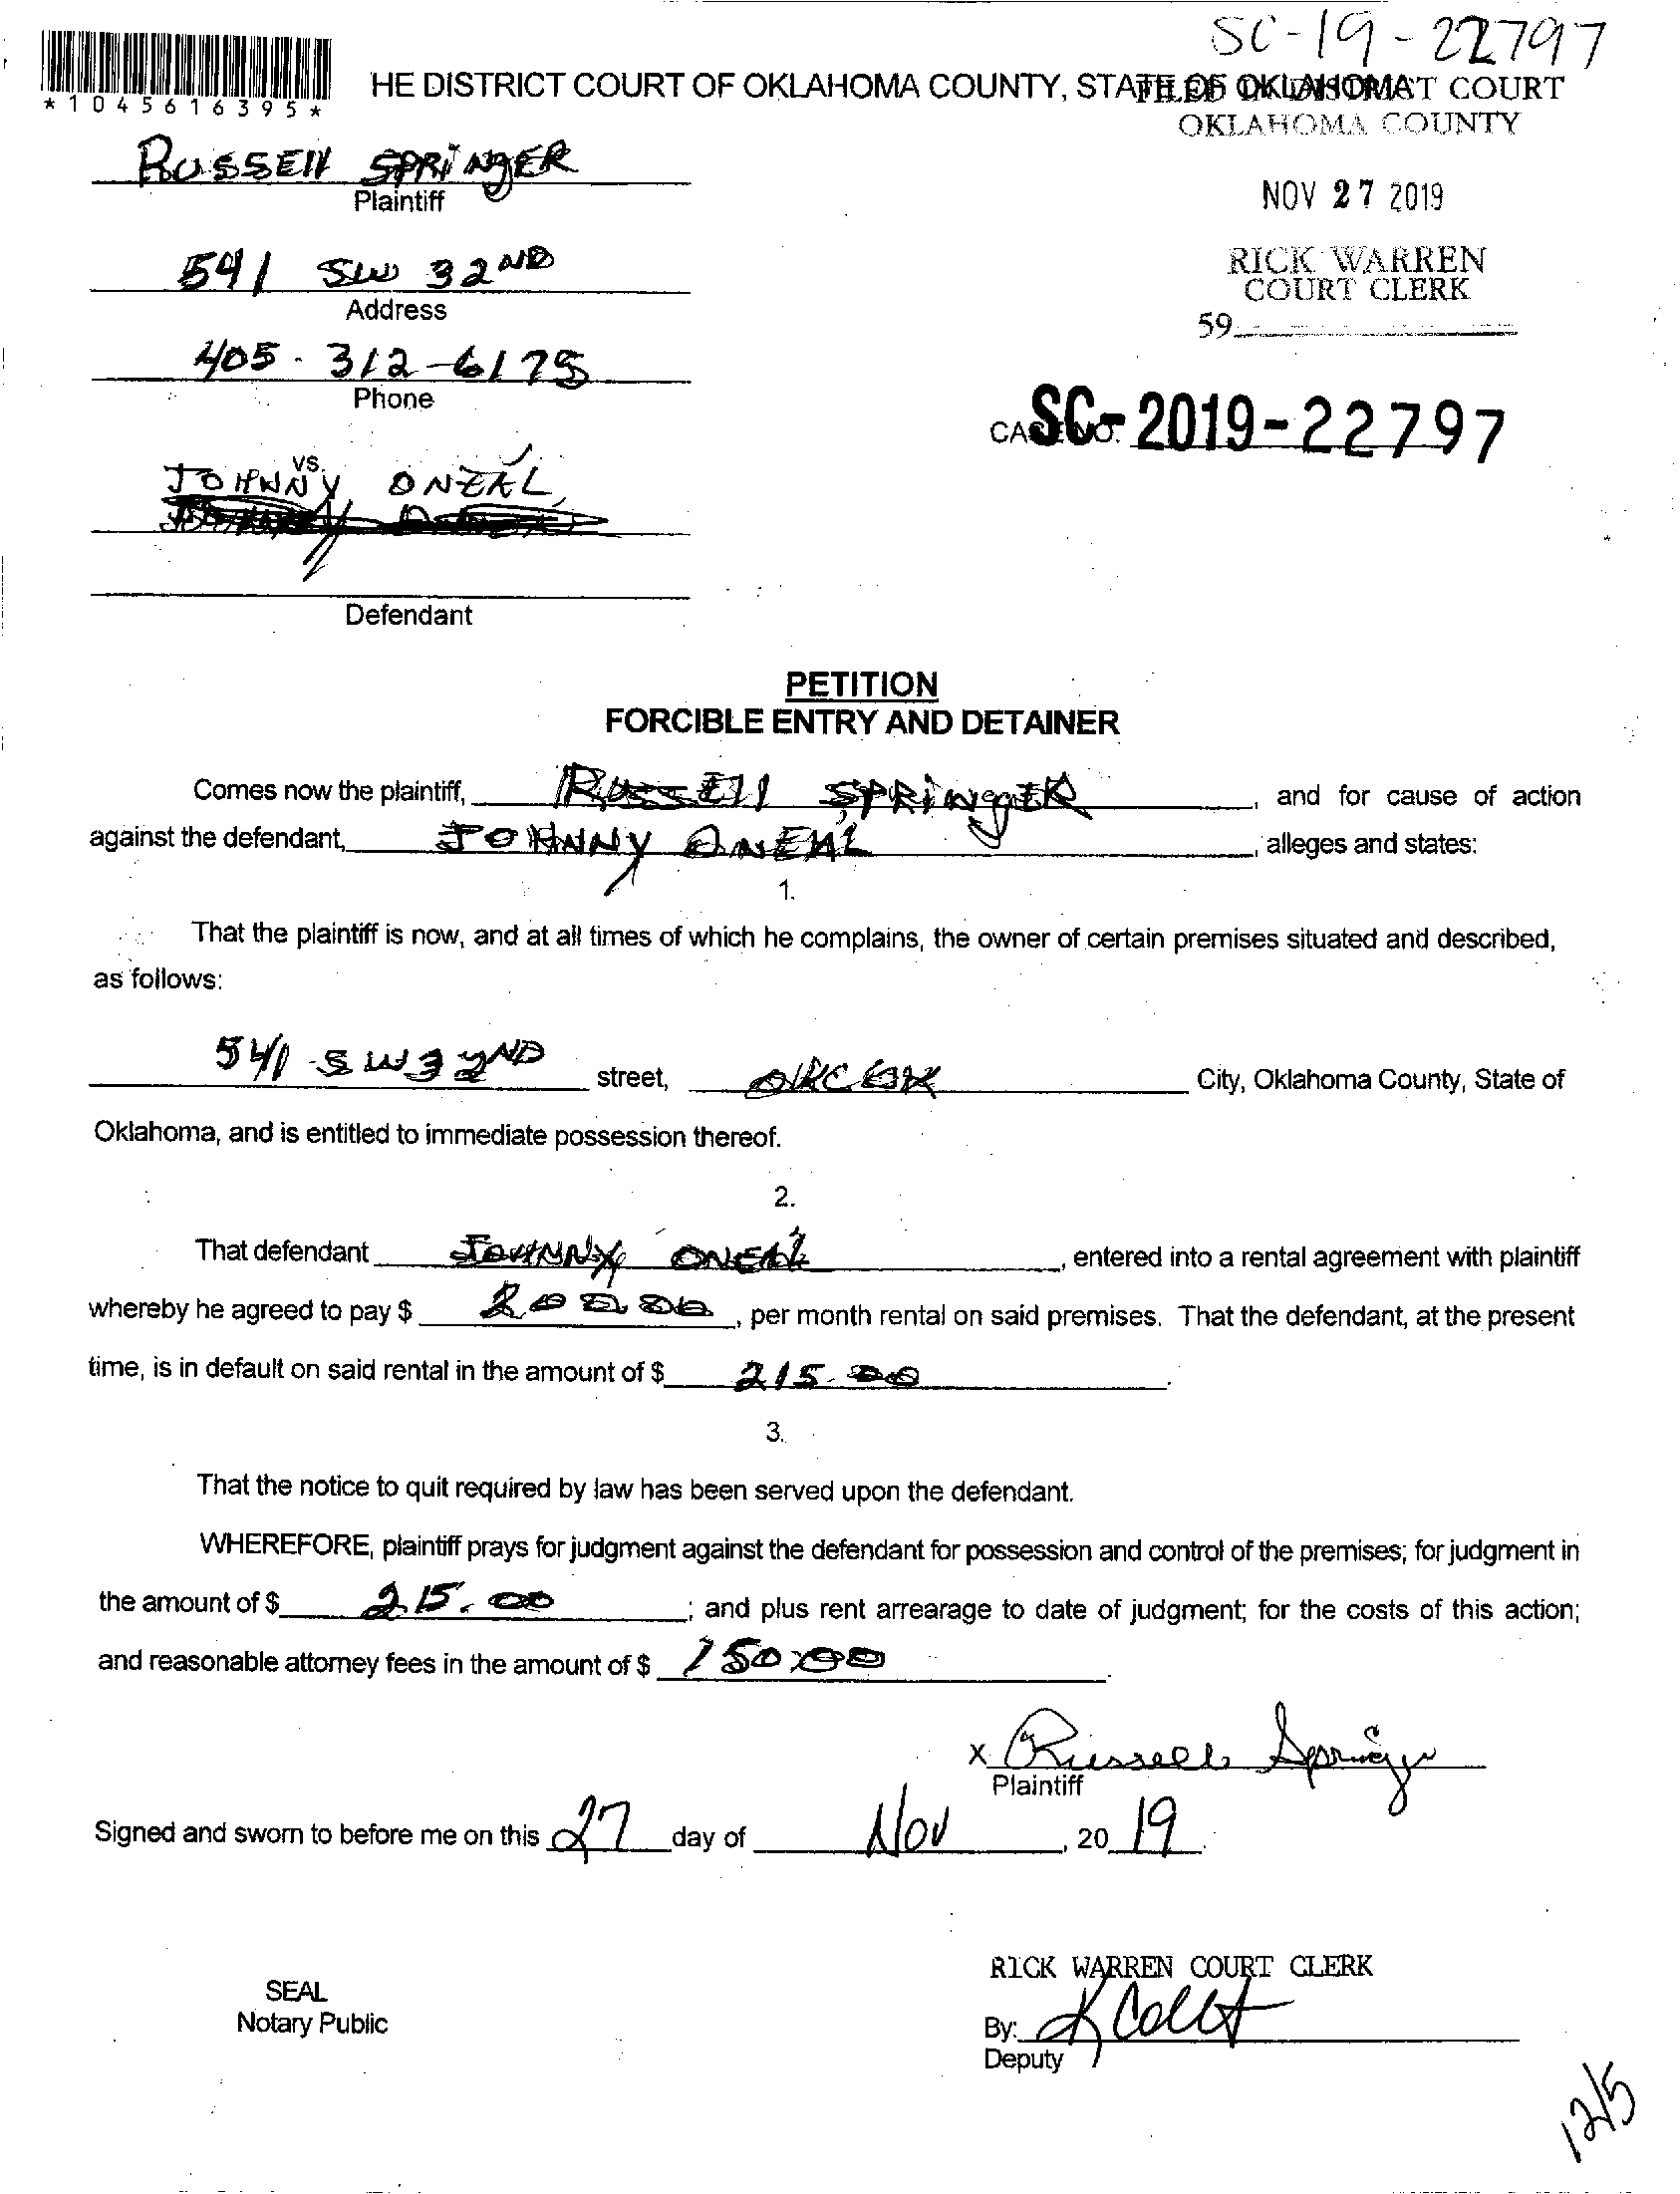 SC-19-22797
*1045616395*
HE DISTRICT COURT OF OKLAHOMA COUNTY, STATE OF OKLAHOMA
FILED IN DISTRICT COURT
OKLAHOMA COUNTY
RUSSEll SPRiNgER
Plaintiff
NOV 27 2019
541 SW 32ND
Address
RICK WARREN
COURT CLERK
59
405-312-6175
Phone
CASE NO. SC-2019-22797
vs.
JOHNNY ONEAL
Defendant
PETITION
FORCIBLE ENTRY AND DETAINER
Comes now the plaintiff, RUSSEll SPRiNgER, and for cause of action
against the defendant, JOHNNY ONEAL, alleges and states:
1.
That the plaintiff is now, and at all times of which he complains, the owner of certain premises situated and described,
as follows:
541 SW 32ND street, OKC OK City, Oklahoma County, State of
Oklahoma, and is entitled to immediate possession thereof.
2.
That defendant JOHNNY ONEAL, entered into a rental agreement with plaintiff
whereby he agreed to pay $ 200.00, per month rental on said premises. That the defendant, at the present
time, is in default on said rental in the amount of $ 215.00.
3.
That the notice to quit required by law has been served upon the defendant.
WHEREFORE, plaintiff prays for judgment against the defendant for possession and control of the premises; for judgment in
the amount of $ 215.00; and plus rent arrearage to date of judgment; for the costs of this action;
and reasonable attorney fees in the amount of $ 150.00.
x Russell Springer
Plaintiff
Signed and sworn to before me on this 27 day of Nov, 2019.
RICK WARREN COURT CLERK
SEAL
Notary Public
By:
Deputy
12/5